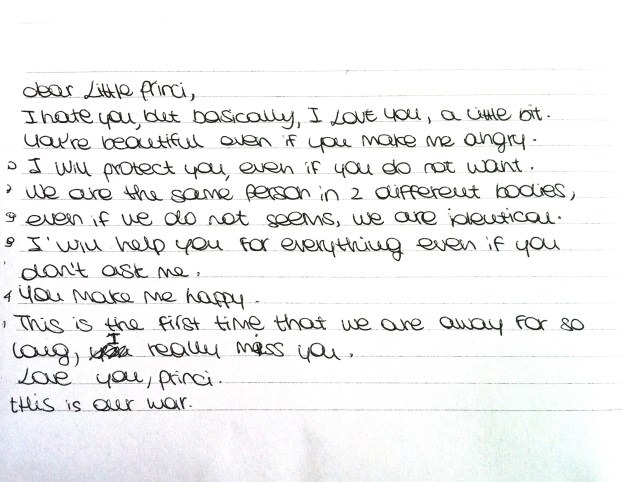 dear Little princi,
I hate you, but basically, I Love you, a little bit.
You're beautiful even if you make me angry.
I will protect you, even if you do not want.
We are the same person in 2 different bodies,
even if we do not seems, we are identical.
I'will help you for everything even if you
don't ask me.
You make me happy.
This is the first time that we are away for so
long, I really miss you.
Love you, princi.
this is our war.